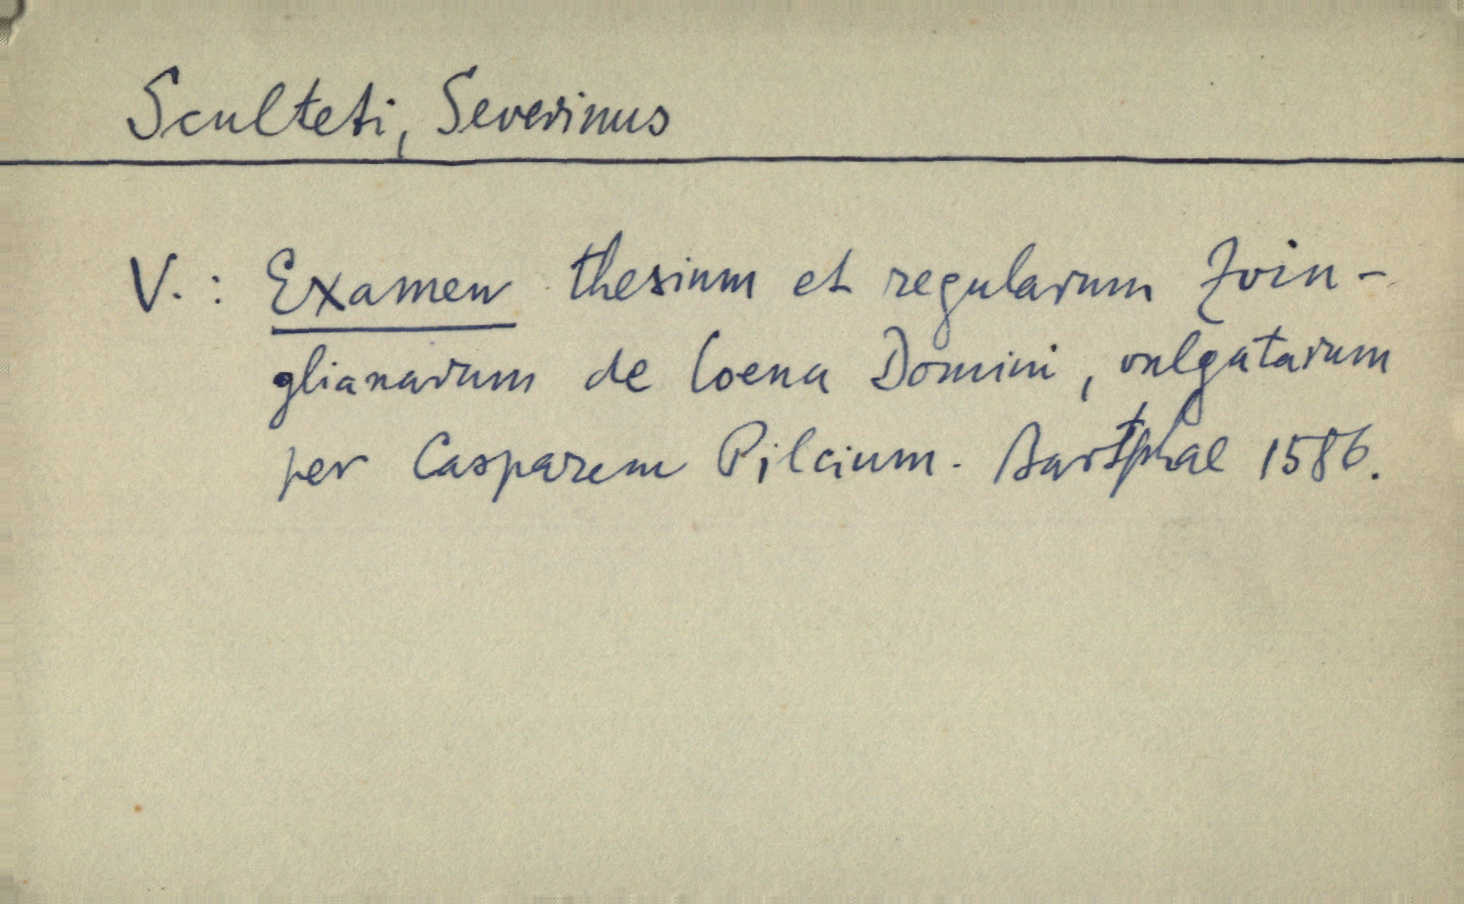 Sculteti, Severinus
V.: Examen thesium et regularum Zvin-
glianarum de Coena Domini, vulgatarum
per Casparem Pilcium. Bartphae 1586.